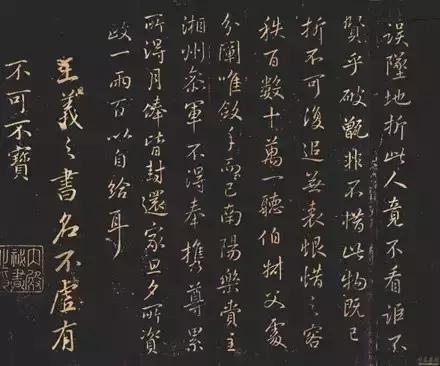 誤墜地折此人竟不看詎不
賢乎破甑非不惜此物既已
折不可復追無表恨惜之容
秩百數十萬一聽伯樹父處
分闔唯斂手而已南陽樂賞主
湘州參軍不得奉攜尊累
所得月俸皆封還家旦夕所資
政一兩百以自給耳
王羲之書名不虛有
不可不寶